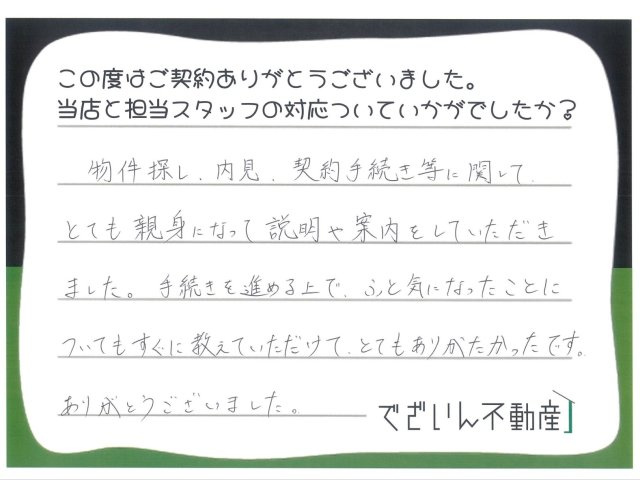 この度はご契約ありがとうございました。
当店と担当スタッフの対応ついていかがでしたか？
物件探し、内見、契約手続き等に関して、
とても親身になって説明や案内をしていただき
ました。手続きを進める上で、ふと気になったことに
ついてもすぐに教えていただけて、とてもありがたかったです。
ありがとうございました。
でざいん不動産